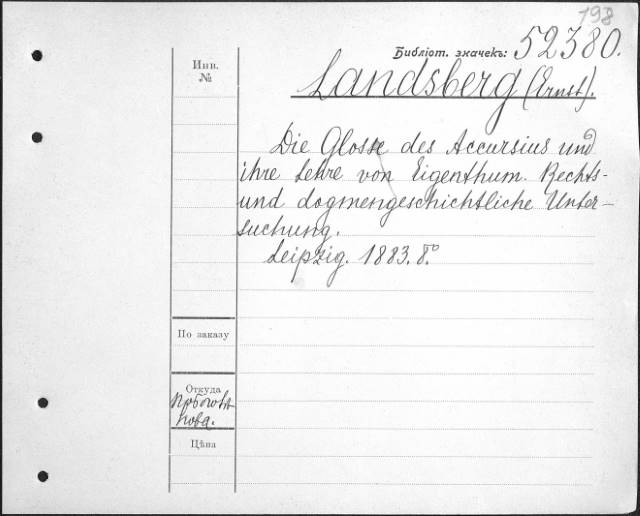 198
Библіот. значекъ: 52380.
Инв.
№
Landsberg (Ernst).
Die Glosse des Accursius und
ihre Lehre von Eigenthum. Rechts-
und dogmengeschichtliche Unter-
suchung.
Leipzig. 1883. 8º.
По заказу
Откуда
Цѣна